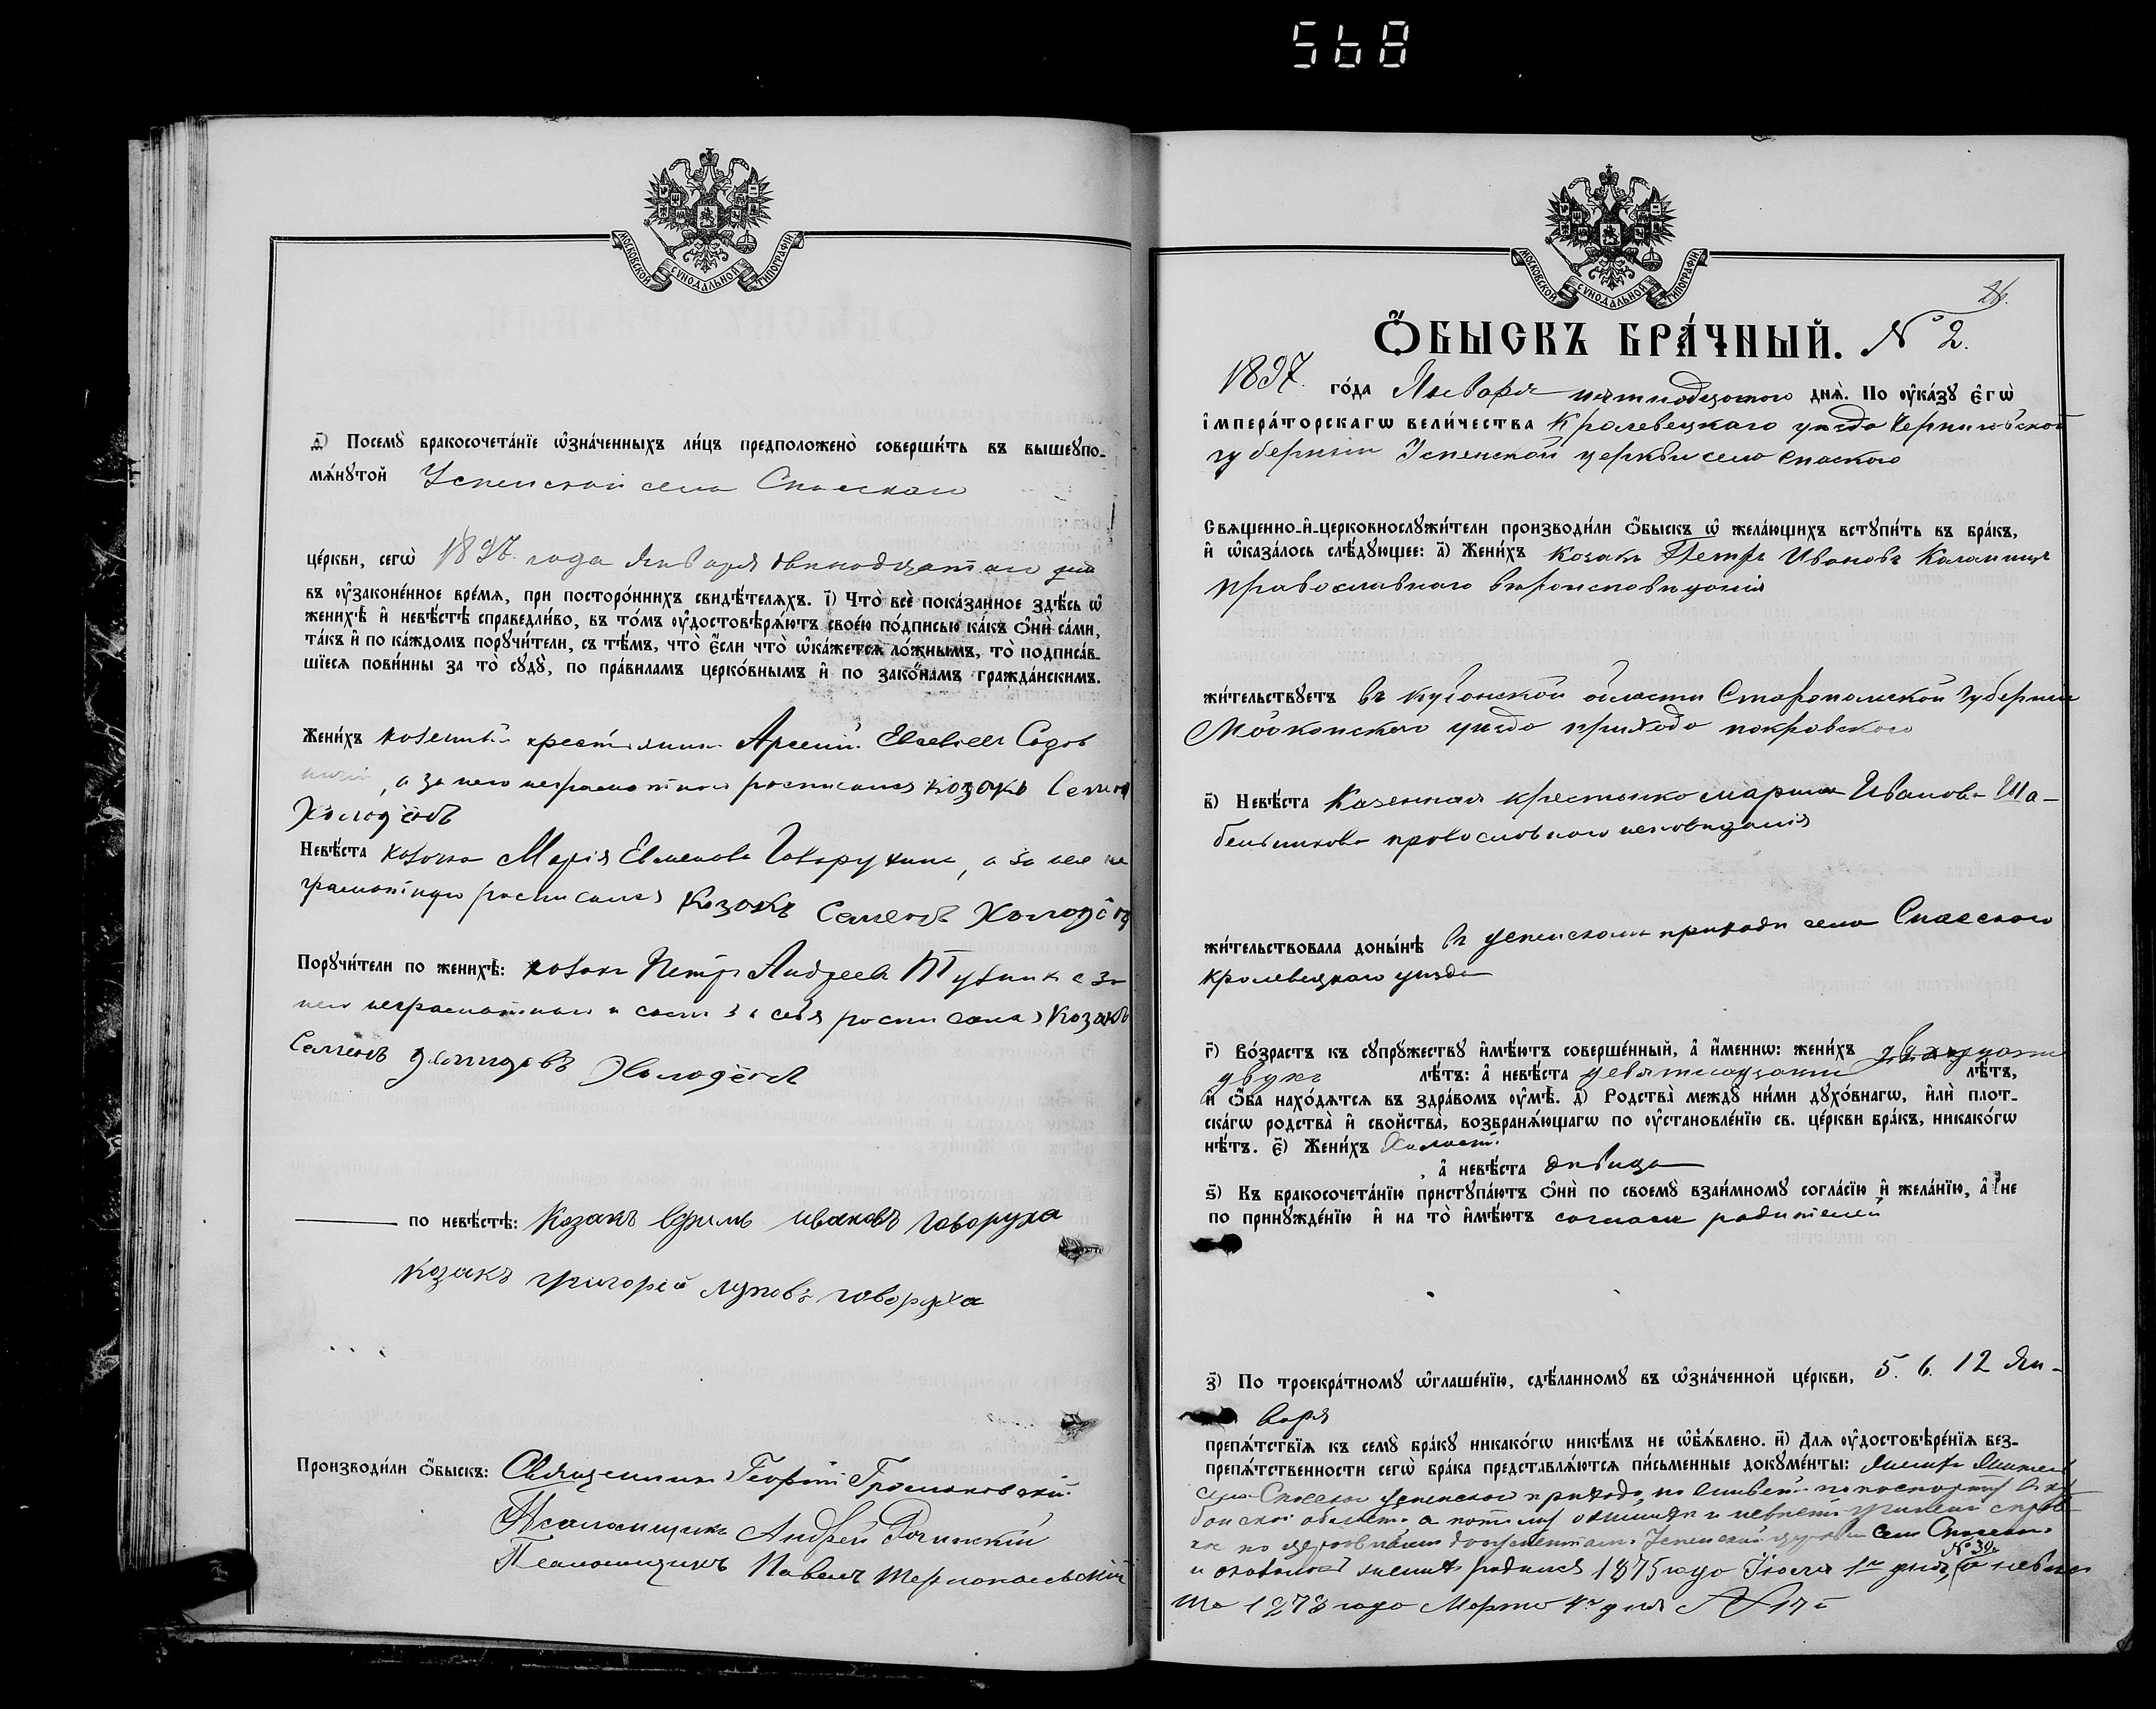 568
МОСКОВСКОЙ СѴНОДАЛЬНОЙ ТИПОГРАФІИ
д҃) Посемꙋ̀ бракосочета́нїе ѡ҆зна́ченныхъ ли́цъ предположено̀ соверши́ть въ вышеꙋпо-
мѧ́нꙋтой Успенской села Спаскаго
це́ркви, сегѡ̀ 1897 года Января двинадцатаго дня
въ ᲂу҆законе́нное вре́мѧ, при посторо́ннихъ свидѣ́телѧхъ. і҃) Что̀ всѐ пока́занное здѣ́сь ѡ҆
женихѣ̀ и҆ невѣ́стѣ справедли́во, въ то́мъ ᲂу҆достовѣрѧ́ютъ свое́ю по́дписью ка́къ ѻ҆нѝ са́ми,
та́къ и҆ по ка́ждомъ порꙋчи́тели, съ тѣ́мъ, что̀ є҆́сли что̀ ѡ҆ка́жетсѧ ло́жнымъ, то̀ подписа́в-
шїесѧ пови́нны за то̀ сꙋдꙋ̀, по пра́виламъ церко́внымъ и҆ по зако́намъ гражда́нскимъ.
Жени́хъ казенный крестьянин Арсений Евсеев Садов
ничій, а за него неграмотного росписался козакъ Семенъ
Холодёвъ
Невѣ́ста козачка Марія Евменова Говорухина, а за нее не
грамотную росписался Козакъ Семенъ Холодёвъ
Порꙋчи́тели по женихѣ̀: козакъ Петръ Андреев а за
него неграмотного и самъ за себя росписался Козакъ
Семенъ Холодёвъ
по невѣ́стѣ: Козакъ Ефимъ Ивановъ Говоруха
Козакъ Григорій Луповъ Говоруха
Производи́ли ѻ҆́быскъ: Священникъ Георгій Громаковскій
Псаломщикъ Андрей Рачинскій
Псаломщикъ Павелъ Тарнопольскій
МОСКОВСКОЙ СѴНОДАЛЬНОЙ ТИПОГРАФІИ
26.
Ѻ҆́БЫСКЪ БРА́ЧНЫЙ. № 2.
1897. го́да Января пятнадцатого днѧ̀. По ᲂу҆ка́зꙋ є҆гѡ̀
і҆мпера́торскагѡ вели́чества Кролевецкаго уѣзда Черниговской
губерніи Успенской церкви села Спаского
Свѧщенно-и҆-церковнослꙋжи́тели производи́ли ѻ҆́быскъ ѡ҆ жела́ющихъ встꙋпи́ть въ бра́къ,
и҆ ѡ҆каза́лось слѣ́дꙋющее: а҃) Жени́хъ Козакъ Петръ Ивановъ
православнаго вѣроисповѣданія
жи́тельствꙋетъ въ Кубанской области Ставропольской губерніи
Майкопскаго уѣзда прихода покровского
в҃) Невѣ́ста Казенная крестьянка Марина Иванова Ша-
бельникова православного исповѣданія
жи́тельствовала доны́нѣ въ успенскомъ приходѣ села Спасского
кролевецкаго уѣзда
г҃) Во́зрастъ къ сꙋпрꙋ́жествꙋ и҆мѣ́ютъ соверше́нный, а҆ и҆́меннѡ: жени́хъ двадцати
двухъ лѣ́тъ: а҆ невѣ́ста девятнадцати лѣ́тъ,
и҆ ѻ҆́ба нахо́дѧтсѧ въ здра́вомъ ᲂу҆мѣ̀. д҃) Родства̀ междꙋ̀ ни́ми дꙋхо́внагѡ, и҆лѝ плот-
ска́гѡ родства̀ и҆ сво́йства, возбранѧ́ющагѡ по ᲂу҆становле́нїю св. це́ркви бра́къ, никако́гѡ
нѣ́тъ. є҃) Жени́хъ Холост.
, а҆ невѣ́ста дѣвица
ѕ҃) Къ бракосочета́нїю пристꙋпа́ютъ ѻ҆нѝ по своемꙋ̀ взаи́мномꙋ согла́сїю и҆ жела́нїю, а҆ не
по принꙋжде́нїю и҆ на то̀ и҆мѣ́ютъ согласи родителей
з҃) По троекра́тномꙋ ѡ҆глаше́нїю, сдѣ́ланномꙋ въ ѡ҆зна́ченной це́ркви, 5. 6. 12 Ян-
варя
препѧ́тствїѧ къ семꙋ̀ бра́кꙋ никако́гѡ никѣ́мъ не ѡ҆б̾ѧ́влено. и҃) Длѧ ᲂу҆достовѣре́нїѧ без-
препѧ́тственности сегѡ̀ бра́ка представлѧ́ютсѧ пи́сьменные докꙋме́нты: Жених жител
села Спасского успенского прихода, но по паспорту в Ку-
банской области а потому о женихѣ и невѣстѣ
по церковнымъ документамъ Успенской церкви села Спасского
№ 39
и оказалось жених родился 1875 года Іюля 1го дня, а невѣс
та 1878 года Марта 4го дня № 17й